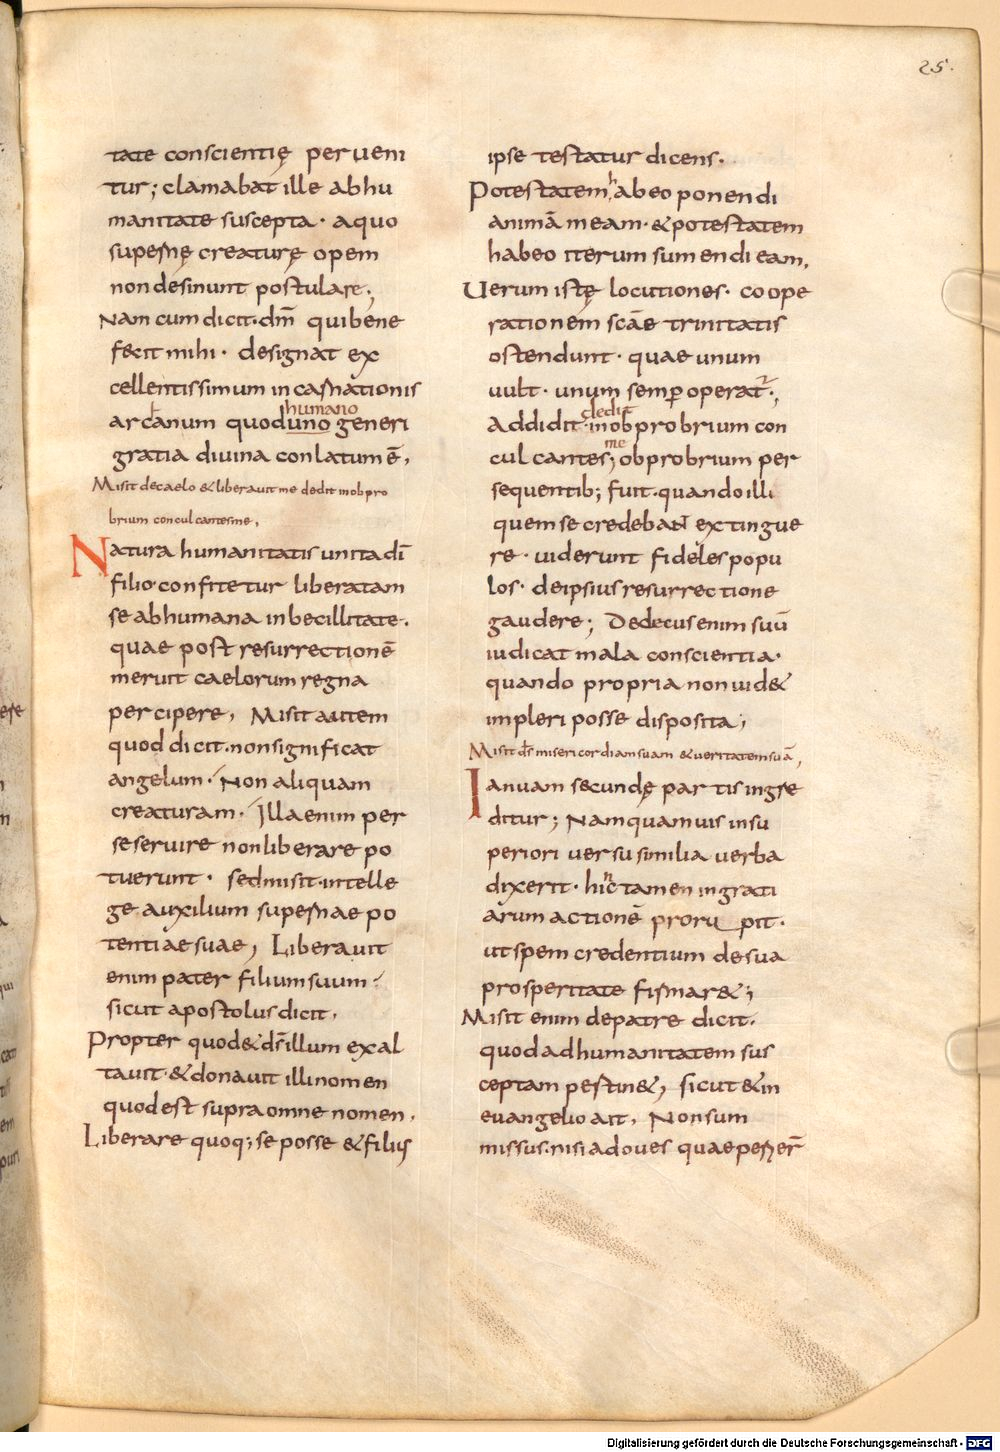 25.
tate conscientię perueni
tur; clamabat ille abhu
manitate suscepta· aquo
supernę creaturę opem
nondesinunt postulare;
Nam cum dicit· dm̄ quibene
fecit mihi· designat ex
cellentissimum incarnationis
arcanum quod uno generi
humano
gratia diuina conlatumē,
Misit decaelo &liberauitme dedit inobpro
brium conculcantesme,
Natura humanitatis unita dī
filio· confitetur liberatam
se abhumana inbecillitate·
quae post resurrectionē
meruit caelorum regna
percipere, Misit autem
quod dicit· nonsignificat
angelum· Non aliquam
creaturam· Illa enim per
se seruire nonliberare po
tuerunt· sedmisit· intelle
ge auxilium supernae po
tentiae suae, Liberauit
enim pater filium suum·
sicut apostolus dicit,
Propter quod&ds̄ illum exal
tauit· &donauit illi nomen
quod est supra omne nomen,
Liberare quoq; se posse &filius
ipse testatur dicens·
Potestatem habeo ponendi
animā meam· &potestatem
habeo iterum sumendi eam,
Uerum istę locutiones· coope
rationem scāe trinitatis
ostendunt· quae unum
uult· unum semp operat·,
dedit
Addidit· inobprobrium con
me
culcantes; obprobrium per
sequentib; fuit· quando illi
quem se credebant extingue
re· uiderunt fideles popu
los· deipsius resurrectione
gaudere; Dedecus enim suū
iudicat mala conscientia·
quando propria non uid&
impleri posse disposita;
Misit ds̄ misericordiam suam &ueritatem suā,
Ianuam secundę partis ingre
ditur; Nam quamuis insu
periori uersu similia uerba
dixerit· hinc tamen ingrati
arum actionē proru pit·
ut spem credentium desua
prosperitate firmar&;
Misit enim depatre dicit·
quod adhumanitatem sus
ceptam pertin&, sicut &in
euangelio ait, Non sum
missus· nisi adoues quae perier̄
Digitalisierung gefördert durch die Deutsche Forschungsgemeinschaft - DFG